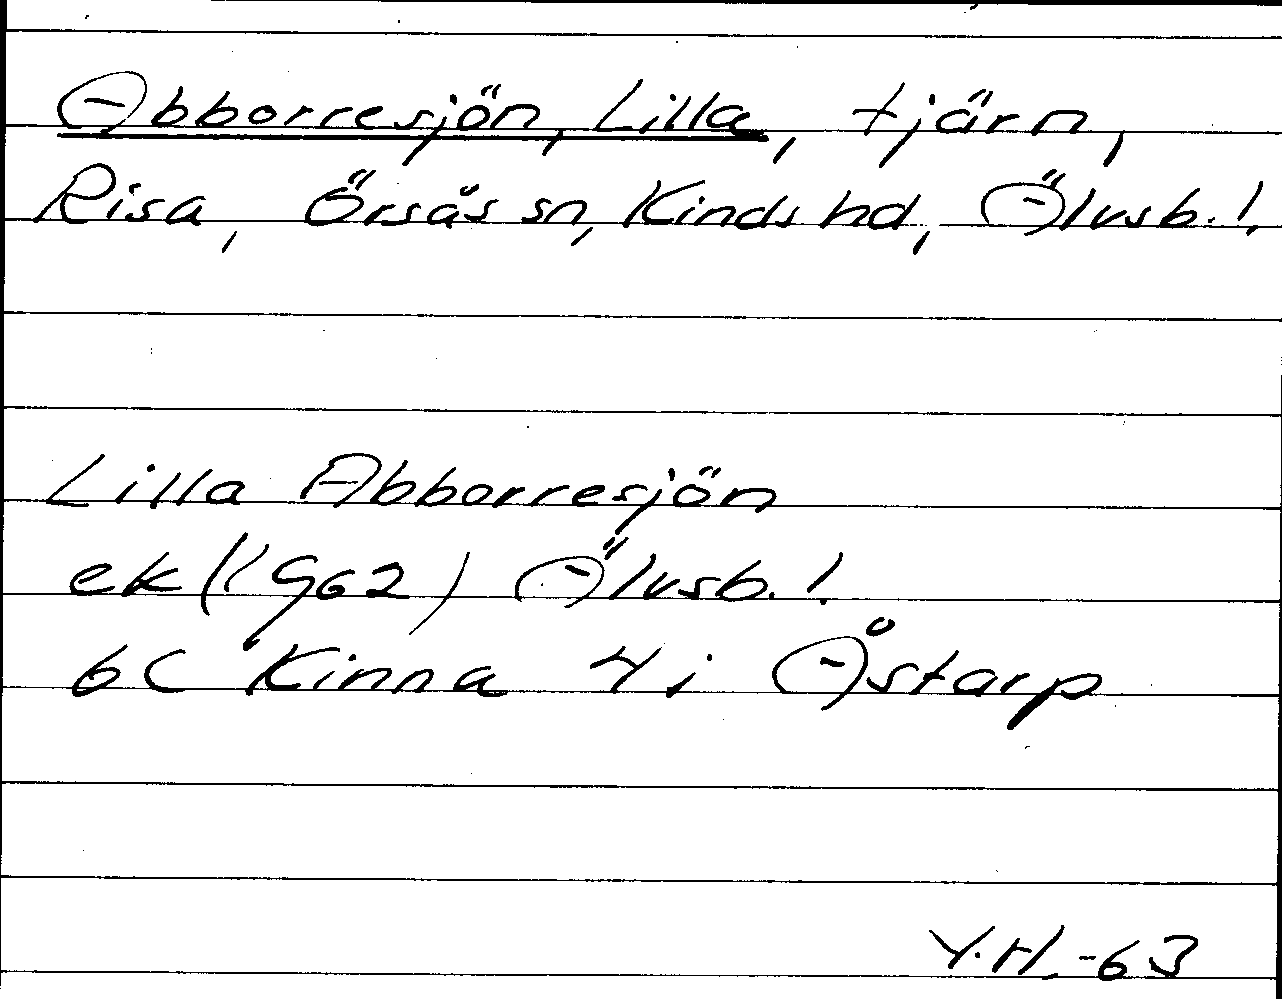 Abborresjön, Lilla, tjärn,
Risa, Örsås sn, Kinds hd, Älvsb. l.
Lilla Abborresjön
ek (1962) Älvsb. l.
6C Kinna 4i Åstarp
Y.H. -63